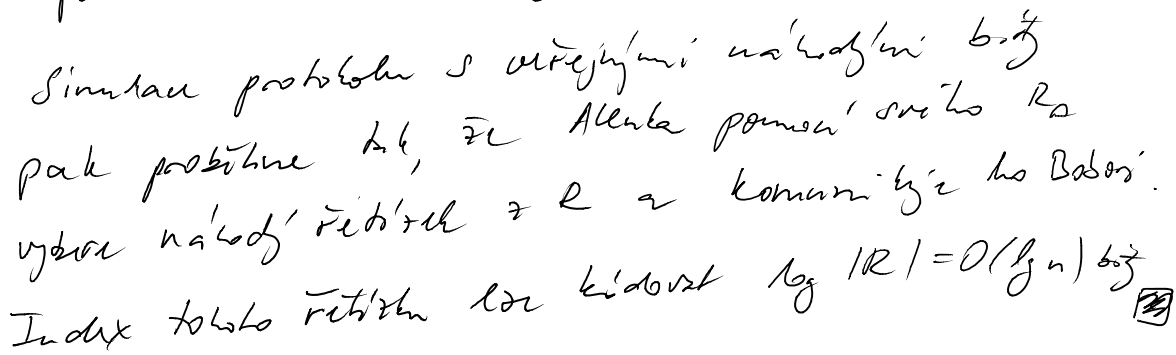 Simulace protokolu s veřejnými náhodnými bity
pak proběhne tak, že Alenka pomocí svého R_A
vybere náhodný řetízek z R a komunikuje ho Bobovi.
Index tohoto řetízku lze kódovat log |R| = O(lg n) bity